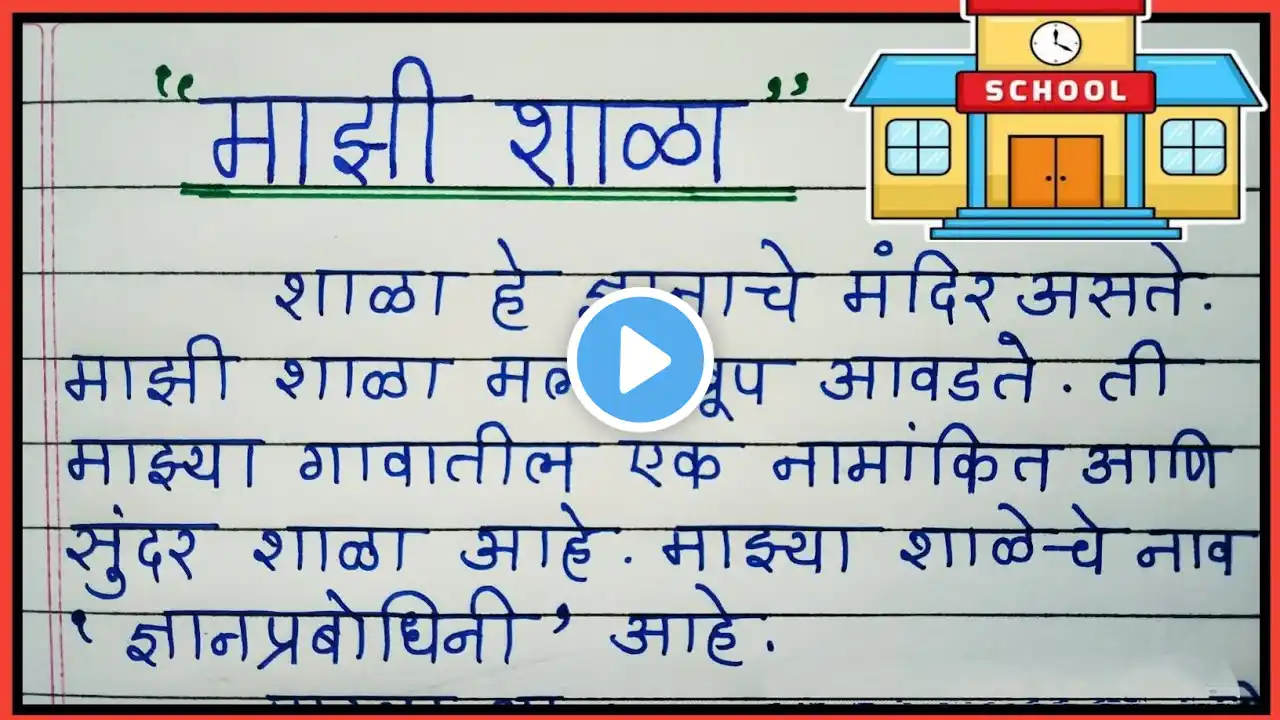 SCHOOL
"माझी शाळा"
शाळा हे ज्ञानाचे मंदिर असते.
माझी शाळा मला खूप आवडते. ती
माझ्या गावातील एक नामांकित आणि
सुंदर शाळा आहे. माझ्या शाळेचे नाव
'ज्ञानप्रबोधिनी' आहे.